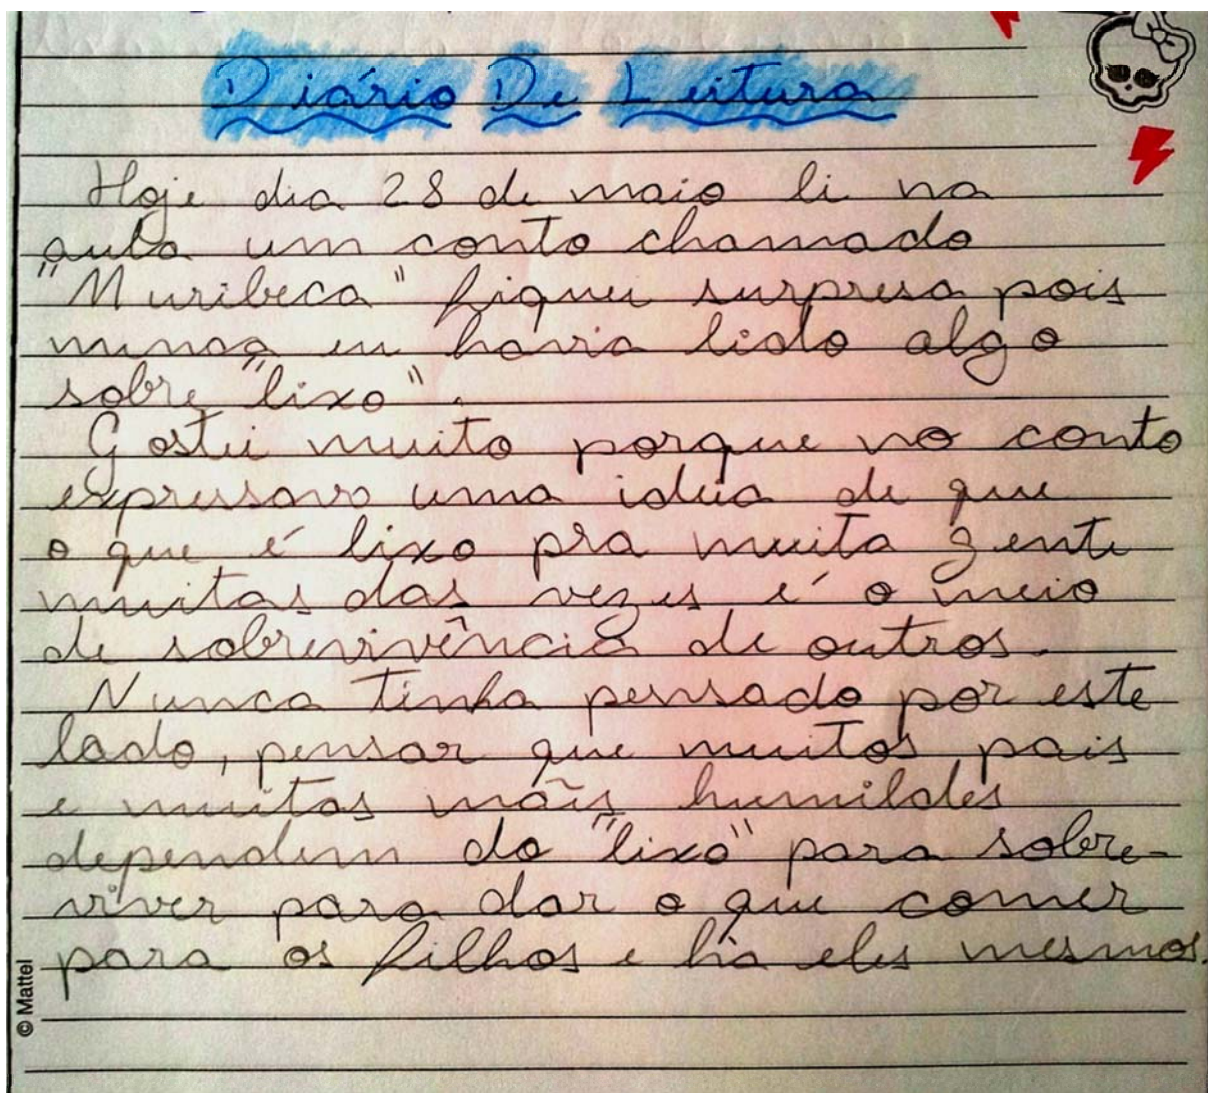 Diário De Leitura
Hoje dia 28 de maio li na
aula um conto chamado
"Muribeca" fiquei surpresa pois
nunca eu havia lido algo
sobre "lixo".
Gostei muito porque no conto
expressava uma idéia de que
o que é lixo pra muita gente
muitas das vezes é o meio
de sobrevivência de outros.
Nunca tinha pensado por este
lado, pensar que muitos pais
e muitas mães humildes
dependem do "lixo" para sobre-
viver para dar o que comer
para os filhos e há eles mesmos.
© Mattel